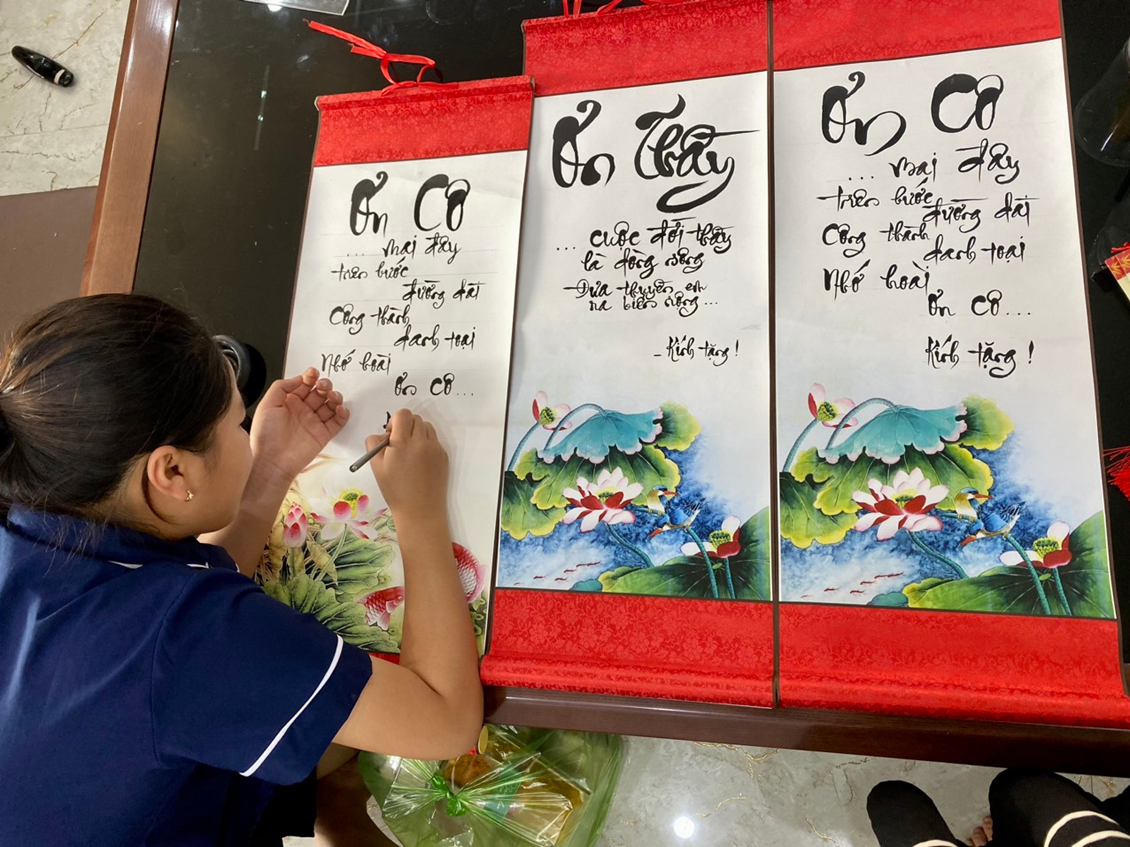 Ơn Cô
... mai đây
trên bước
đường dài
Công thành
danh toại
Nhớ hoài
ơn cô...
Ơn Thầy
... cuộc đời thầy
là dòng sông
Đưa thuyền em
ra biển rộng...
- Kính tặng!
Ơn Cô
... mai đây
trên bước
đường dài
Công thành
danh toại
Nhớ hoài
ơn cô...
Kính tặng!